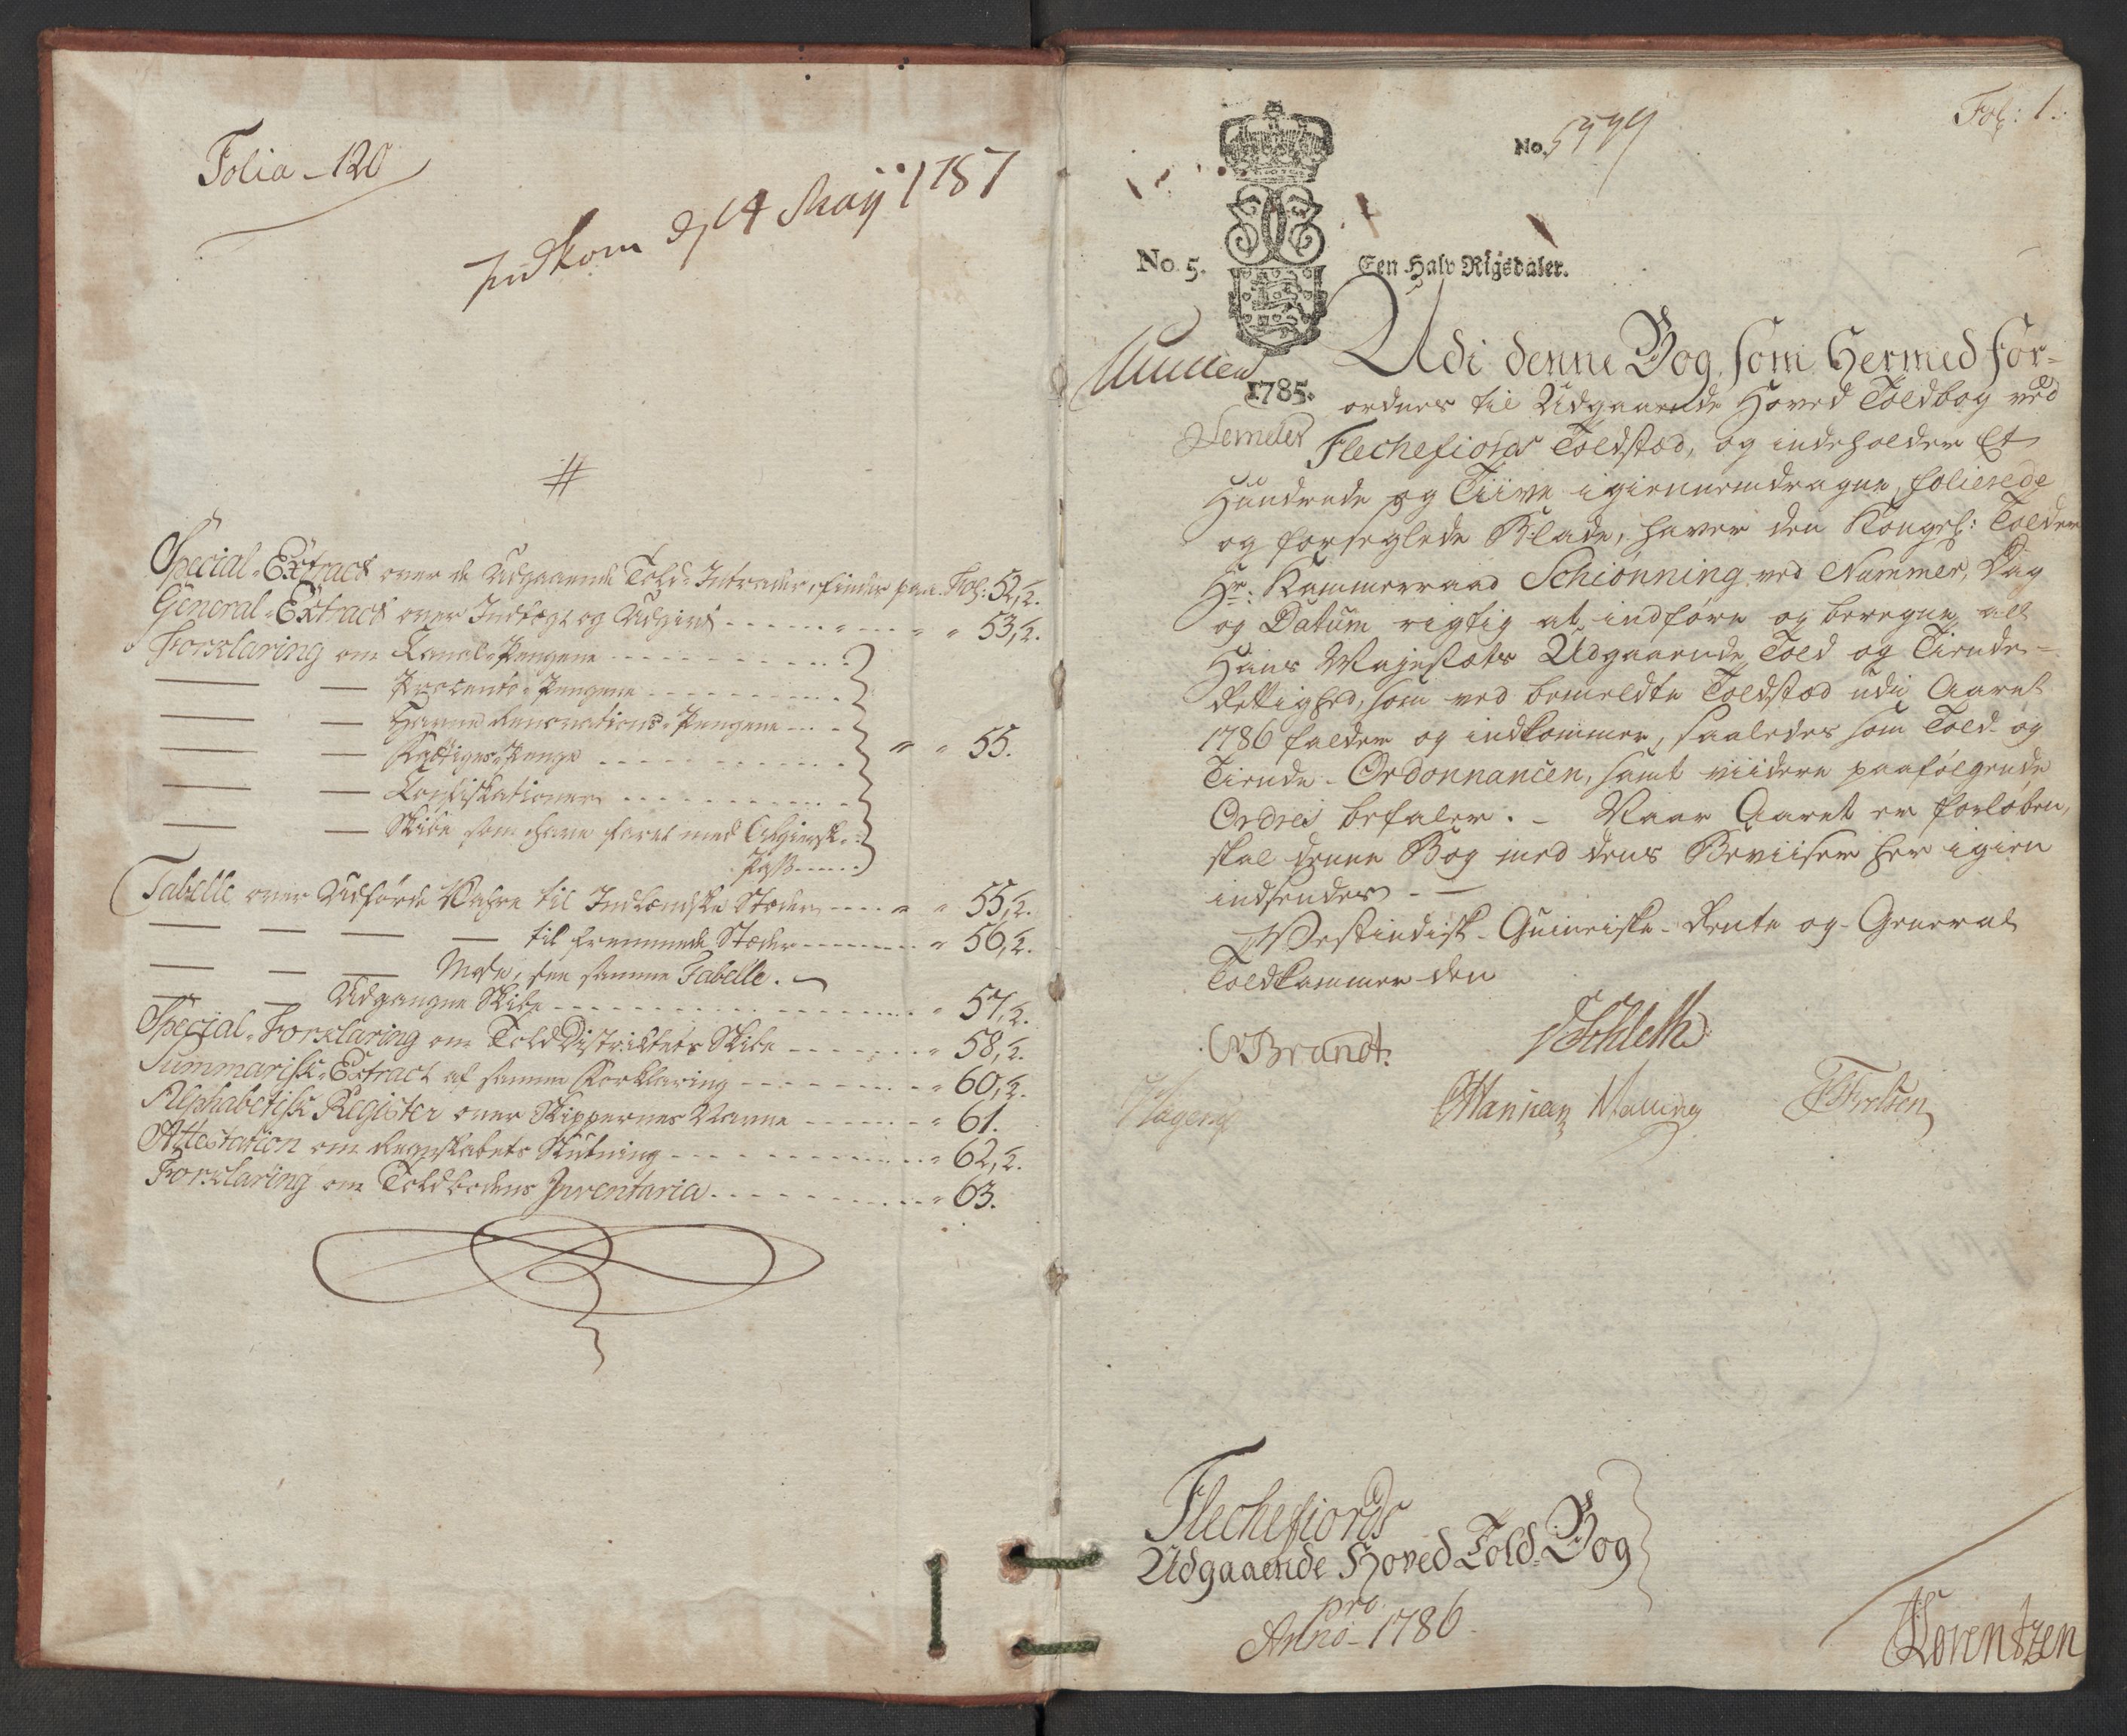 Folia - 120
Indkom d 14 Maij 1787
#
Special-Extract over de Udgaaende Told-Intrader, findes paa Fol: 52,2.
General-Extract over Indtægt og Udgivt - - - " " 53,2.
Forklaring om Canal-Pengene - - -
— — Procento-Pengene - - -
— — Havne Renovations-Pengene - - -
— — Fattiges-Penge - - - " " 55.
— — Confiskationer - - -
— — Skibe som have faret med Algiersk-
Pass - - -
Tabelle over Udførde Vahre til Indlændske Stæder - - - " " 55,2.
— — — — til fremmede Stæder - - - " 56,2.
— — — see samme Tabelle.
— — Udgangne Skibe - - - " 57,2.
Special-Forklaring om Told Districtets Skibe - - - " 58,2.
Summarisk-Extract af samme Forklaring - - - " 60,2.
Alphabetisk Register over Skippernes Navne - - - " 61.
Attestation om Regnskabets Slutning - - - " 62,2.
Forklaring om Toldbodens Inventaria - - - " 63.
Fol: 1.
No.
No. 5. Een Halv Rigsdaler.
1785.
Udi denne Bog, som hermed for-
ordnes til Udgaaende Hoved Toldbog ved
Flechefiords Toldsted, og indeholder Et
Hundrede og Tiive igiennemdragne, folierede
og forseglede Blade, haver den Kongel: Tolder
Hr: Kammerraad Schiønning ved Nummer, Dag
og Datum rigtig at indføre og beregne all
Hans Majestæts Udgaaende Told og Tiende-
Rettighed, som ved bemeldte Toldsted udi Aaret
1786 falder og indkommer, saaledes som Told- og
Tiende-Ordonnancen, samt viidere paafølgende
Ordres befaler. - Naar Aaret er forløben,
skal denne Bog med dens Beviiser her igien
indsendes - —
Vestindisk-Guineiske-Rente og General
Toldkammer den
Brandt.
Hansen Malling
Flechefiords
Udgaaende Hoved Told-Bog
pro
Anno 1786
Lorentzen